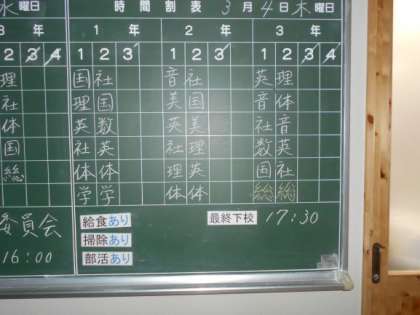 水曜日 時間割表 3月4日木曜日
3年 1年 2年 3年
1 2 3 4 1 2 3 1 2 3 1 2 3 4
理 国社 音社 英理
社 理国 英国 音体
体 英数 英美 社音
国 社英 社理 数英
総 体体 理英 国社
学学 体体 総総
委員会 給食あり 最終下校 17:30
掃除あり
16:00 部活あり